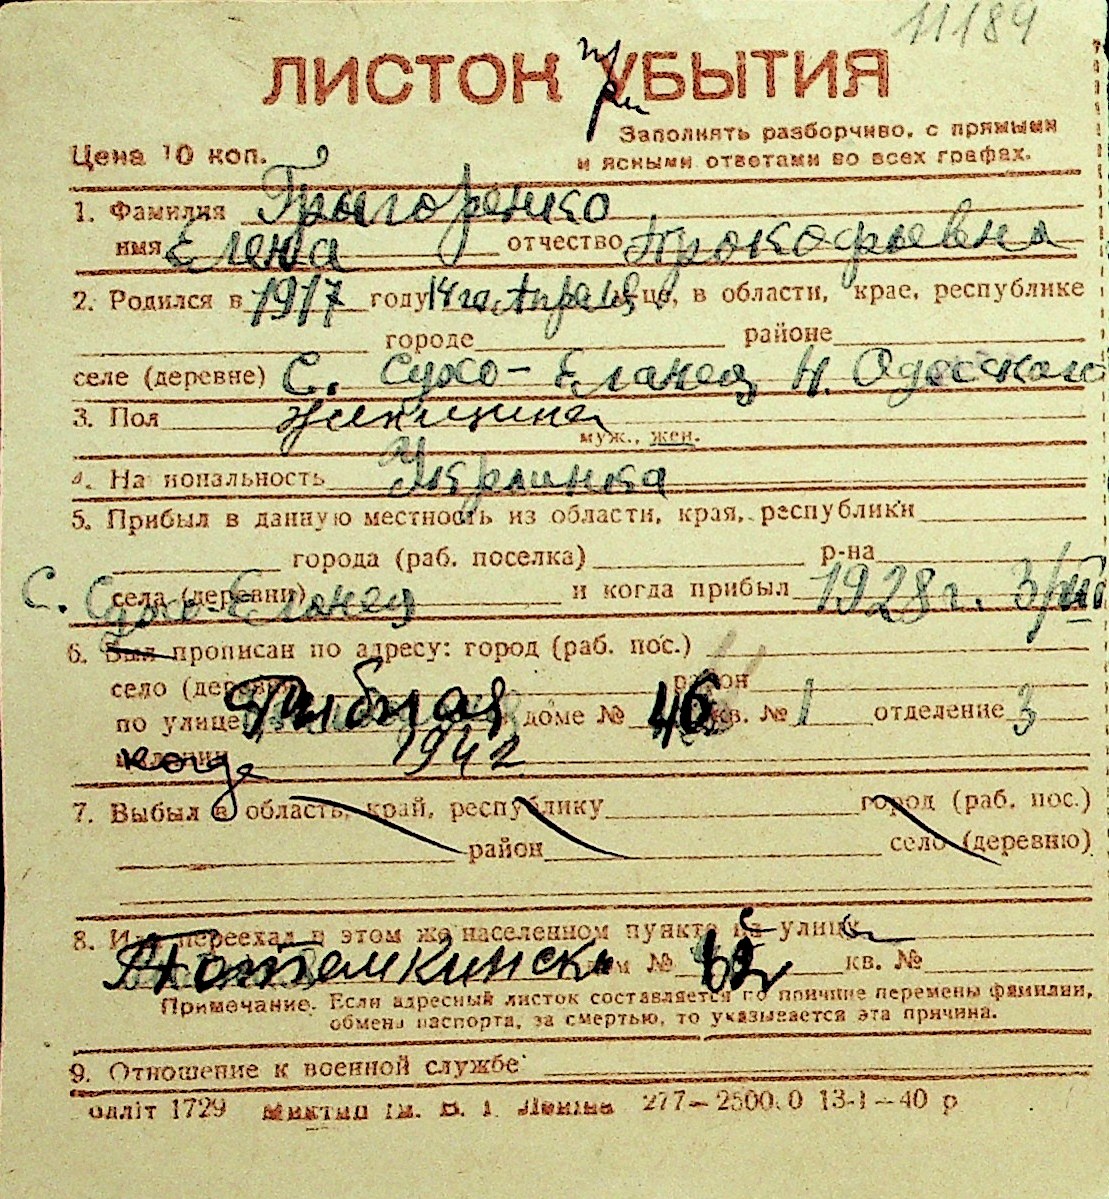 11184
ЛИСТОК УБЫТИЯ
при
Цена 10 коп.
Заполнять разборчиво, с прямыми
и ясными ответами во всех графах.
1. Фамилия Григоренко
имя Елена отчество Прокофьевна
2. Родился в 1917 году 14го Апреля це, в области, крае, республике
городе районе
селе (деревне) С. Сухо-Еланец Н. Одесского
3. Пол женщина
муж., жен.
4. На иональность Украинка
5. Прибыл в данную местность из области, края, республики
города (раб. поселка) р-на
С. Сухо-Еланец села (деревни) и когда прибыл 1928г. 3/
6. Был прописан по адресу: город (раб. пос.)
село (деревня) район
по улице Рыбная доме № 46 кв. № 1 отделение 3
когда 1942
7. Выбыл в область, край, республику город (раб. пос.)
район село (деревню)
8. Или переехал в этом же населенном пункте с улицы
Потемкинск дом № 62 кв. №
Примечание. Если адресный листок составляется по причине перемены фамилии,
обмена паспорта, за смертью, то указывается эта причина.
9. Отношение к военной службе
одліт 1729 Миктип ім. В. І. Леніна 277—25000 13-I—40 р